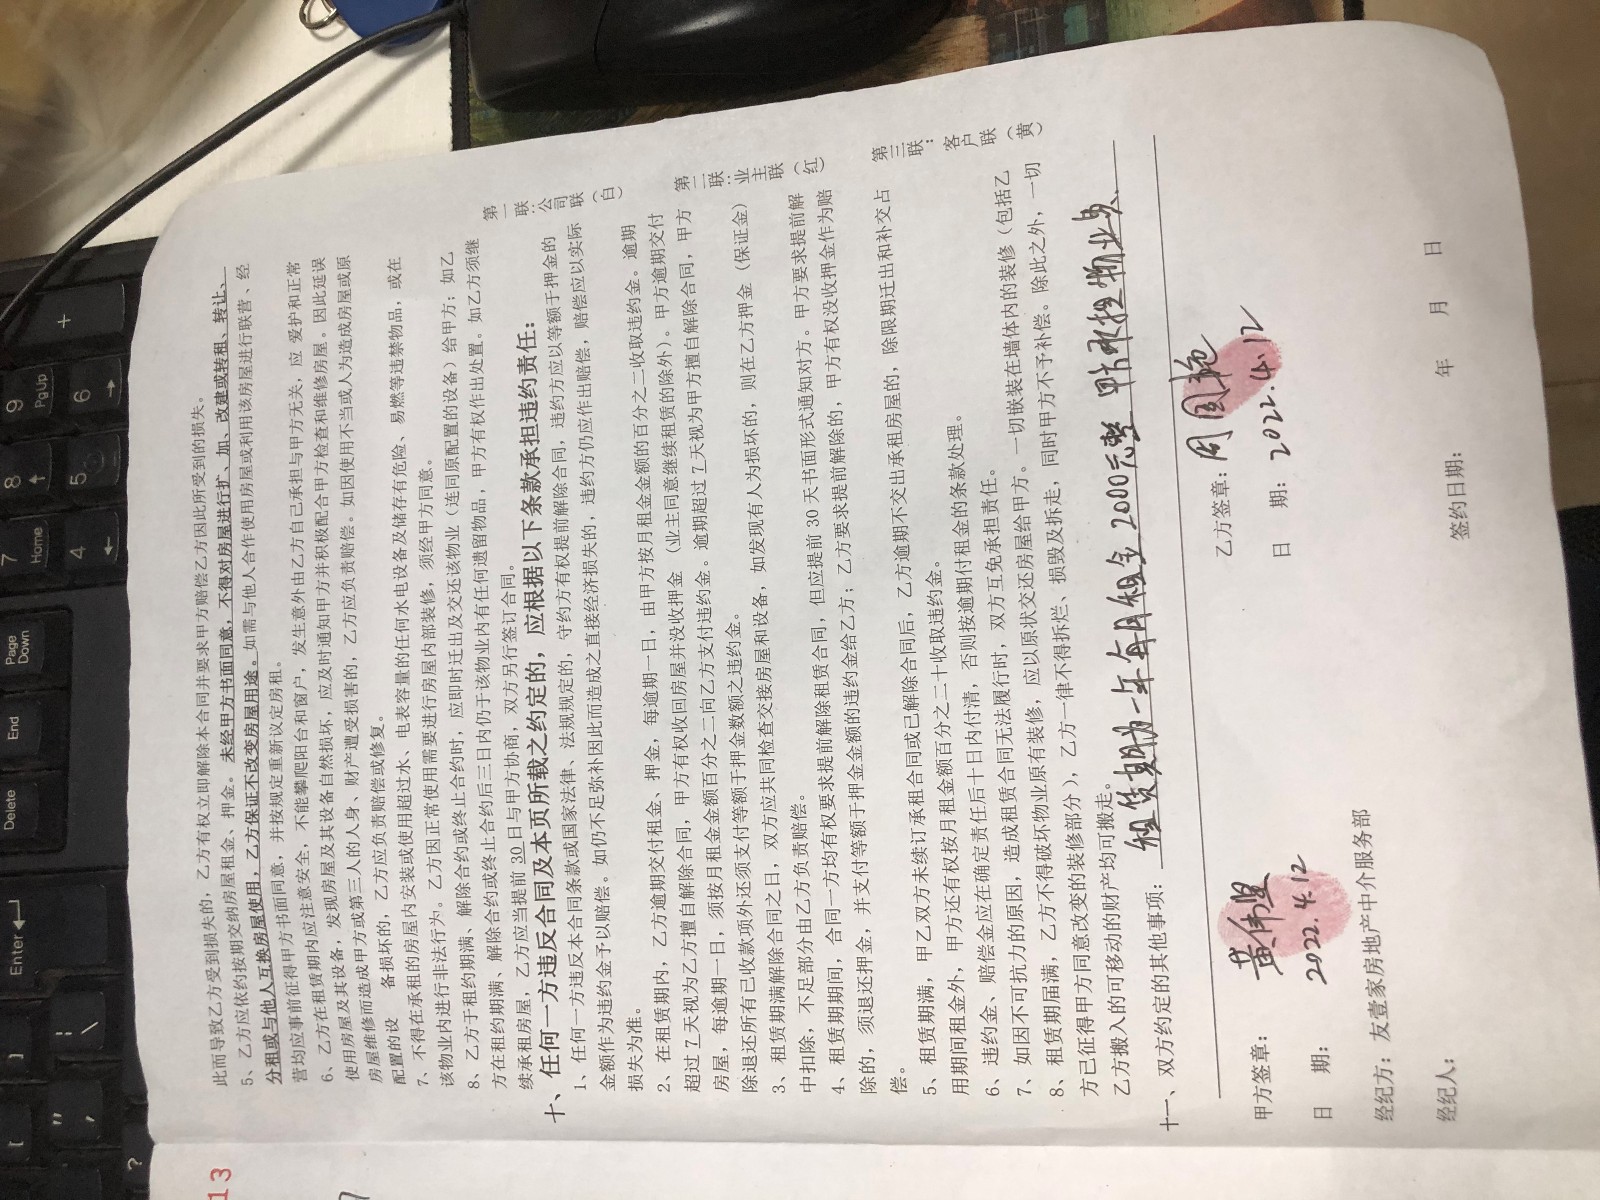 此而导致乙方受到损失的，乙方有权立即解除本合同并要求甲方赔偿乙方因此所受到的损失。
5、乙方应依约按期交纳房屋租金、押金。未经甲方书面同意，不得对房屋进行扩、加、改建或转租、转让、
分租或与他人互换房屋使用，乙方保证不改变房屋用途。如需与他人合作使用房屋或利用该房屋进行联营、经
营均应事前征得甲方书面同意，并按规定重新议定房租。
6、乙方在租赁期内应注意安全，不能攀爬阳台和窗户，发生意外由乙方自己承担与甲方无关，应 爱护和正常
使用房屋及其设备，发现房屋及其设备自然损坏，应及时通知甲方并积极配合甲方检查和维修房屋。因此延误
房屋维修而造成甲方或第三人的人身、财产遭受损害的，乙方应负责赔偿。如因使用不当或人为造成房屋或原
配置的设 备损坏的，乙方应负责赔偿或修复。
7、不得在承租的房屋内安装或使用超过水、电表容量的任何水电设备及储存有危险、易燃等违禁物品，或在
该物业内进行非法行为。乙方因正常使用需要进行房屋内部装修，须经甲方同意。
8、乙方于租约期满、解除合约或终止合约时，应即时迁出及交还该物业（连同原配置的设备）给甲方；如乙
方在租约期满、解除合约或终止合约后三日内仍于该物业内有任何遗留物品，甲方有权作出处置。如乙方须继
续承租房屋，乙方应当提前 30 日与甲方协商，双方另行签订合同。
十、任何一方违反合同及本页所载之约定的，应根据以下条款承担违约责任：
1、任何一方违反本合同条款或国家法律、法规规定的，守约方有权提前解除合同，违约方应以等额于押金的
金额作为违约金予以赔偿。如仍不足弥补因此而造成之直接经济损失的，违约方仍应作出赔偿，赔偿应以实际
损失为准。
2、在租赁期内，乙方逾期交付租金、押金，每逾期一日，由甲方按月租金金额的百分之二收取违约金。逾期
超过 7 天视为乙方擅自解除合同，甲方有权收回房屋并没收押金（业主同意继续租赁的除外）。甲方逾期交付
房屋，每逾期一日，须按月租金金额百分之二向乙方支付违约金。逾期超过 7 天视为甲方擅自解除合同，甲方
除退还所有已收款项外还须支付等额于押金数额之违约金。
3、租赁期满解除合同之日，双方应共同检查交接房屋和设备，如发现有人为损坏的，则在乙方押金（保证金）
中扣除，不足部分由乙方负责赔偿。
4、租赁期期间，合同一方均有权要求提前解除租赁合同，但应提前 30 天书面形式通知对方。甲方要求提前解
除的，须退还押金，并支付等额于押金金额的违约金给乙方；乙方要求提前解除的，甲方有权没收押金作为赔
偿。
5、租赁期满，甲乙双方未续订承租合同或已解除合同后，乙方逾期不交出承租房屋的，除限期迁出和补交占
用期间租金外，甲方还有权按月租金额百分之二十收取违约金。
6、违约金、赔偿金应在确定责任后十日内付清，否则按逾期付租金的条款处理。
7、如因不可抗力的原因，造成租赁合同无法履行时，双方互免承担责任。
8、租赁期届满，乙方不得破坏物业原有装修，应以原状交还房屋给甲方。一切嵌装在墙体内的装修（包括乙
方已征得甲方同意改变的装修部分），乙方一律不得拆烂、损毁及拆走，同时甲方不予补偿。除此之外，一切
乙方搬入的可移动的财产均可搬走。
十一、双方约定的其他事项：租赁期为一年每月租金2000元整 甲方承担物业费、
甲方签章：黄伟盟
乙方签章：周国艳
日 期：2022.4.12
日 期：2022.4.12
经纪方：友壹家房地产中介服务部
经纪人：
签约日期： 年 月 日
第一联：公司联（白）
第二联：业主联（红）
第三联：客户联（黄）
13
Enter
Delete
End
Page Down
7 Home
8
9 PgUp
4
5
6
+